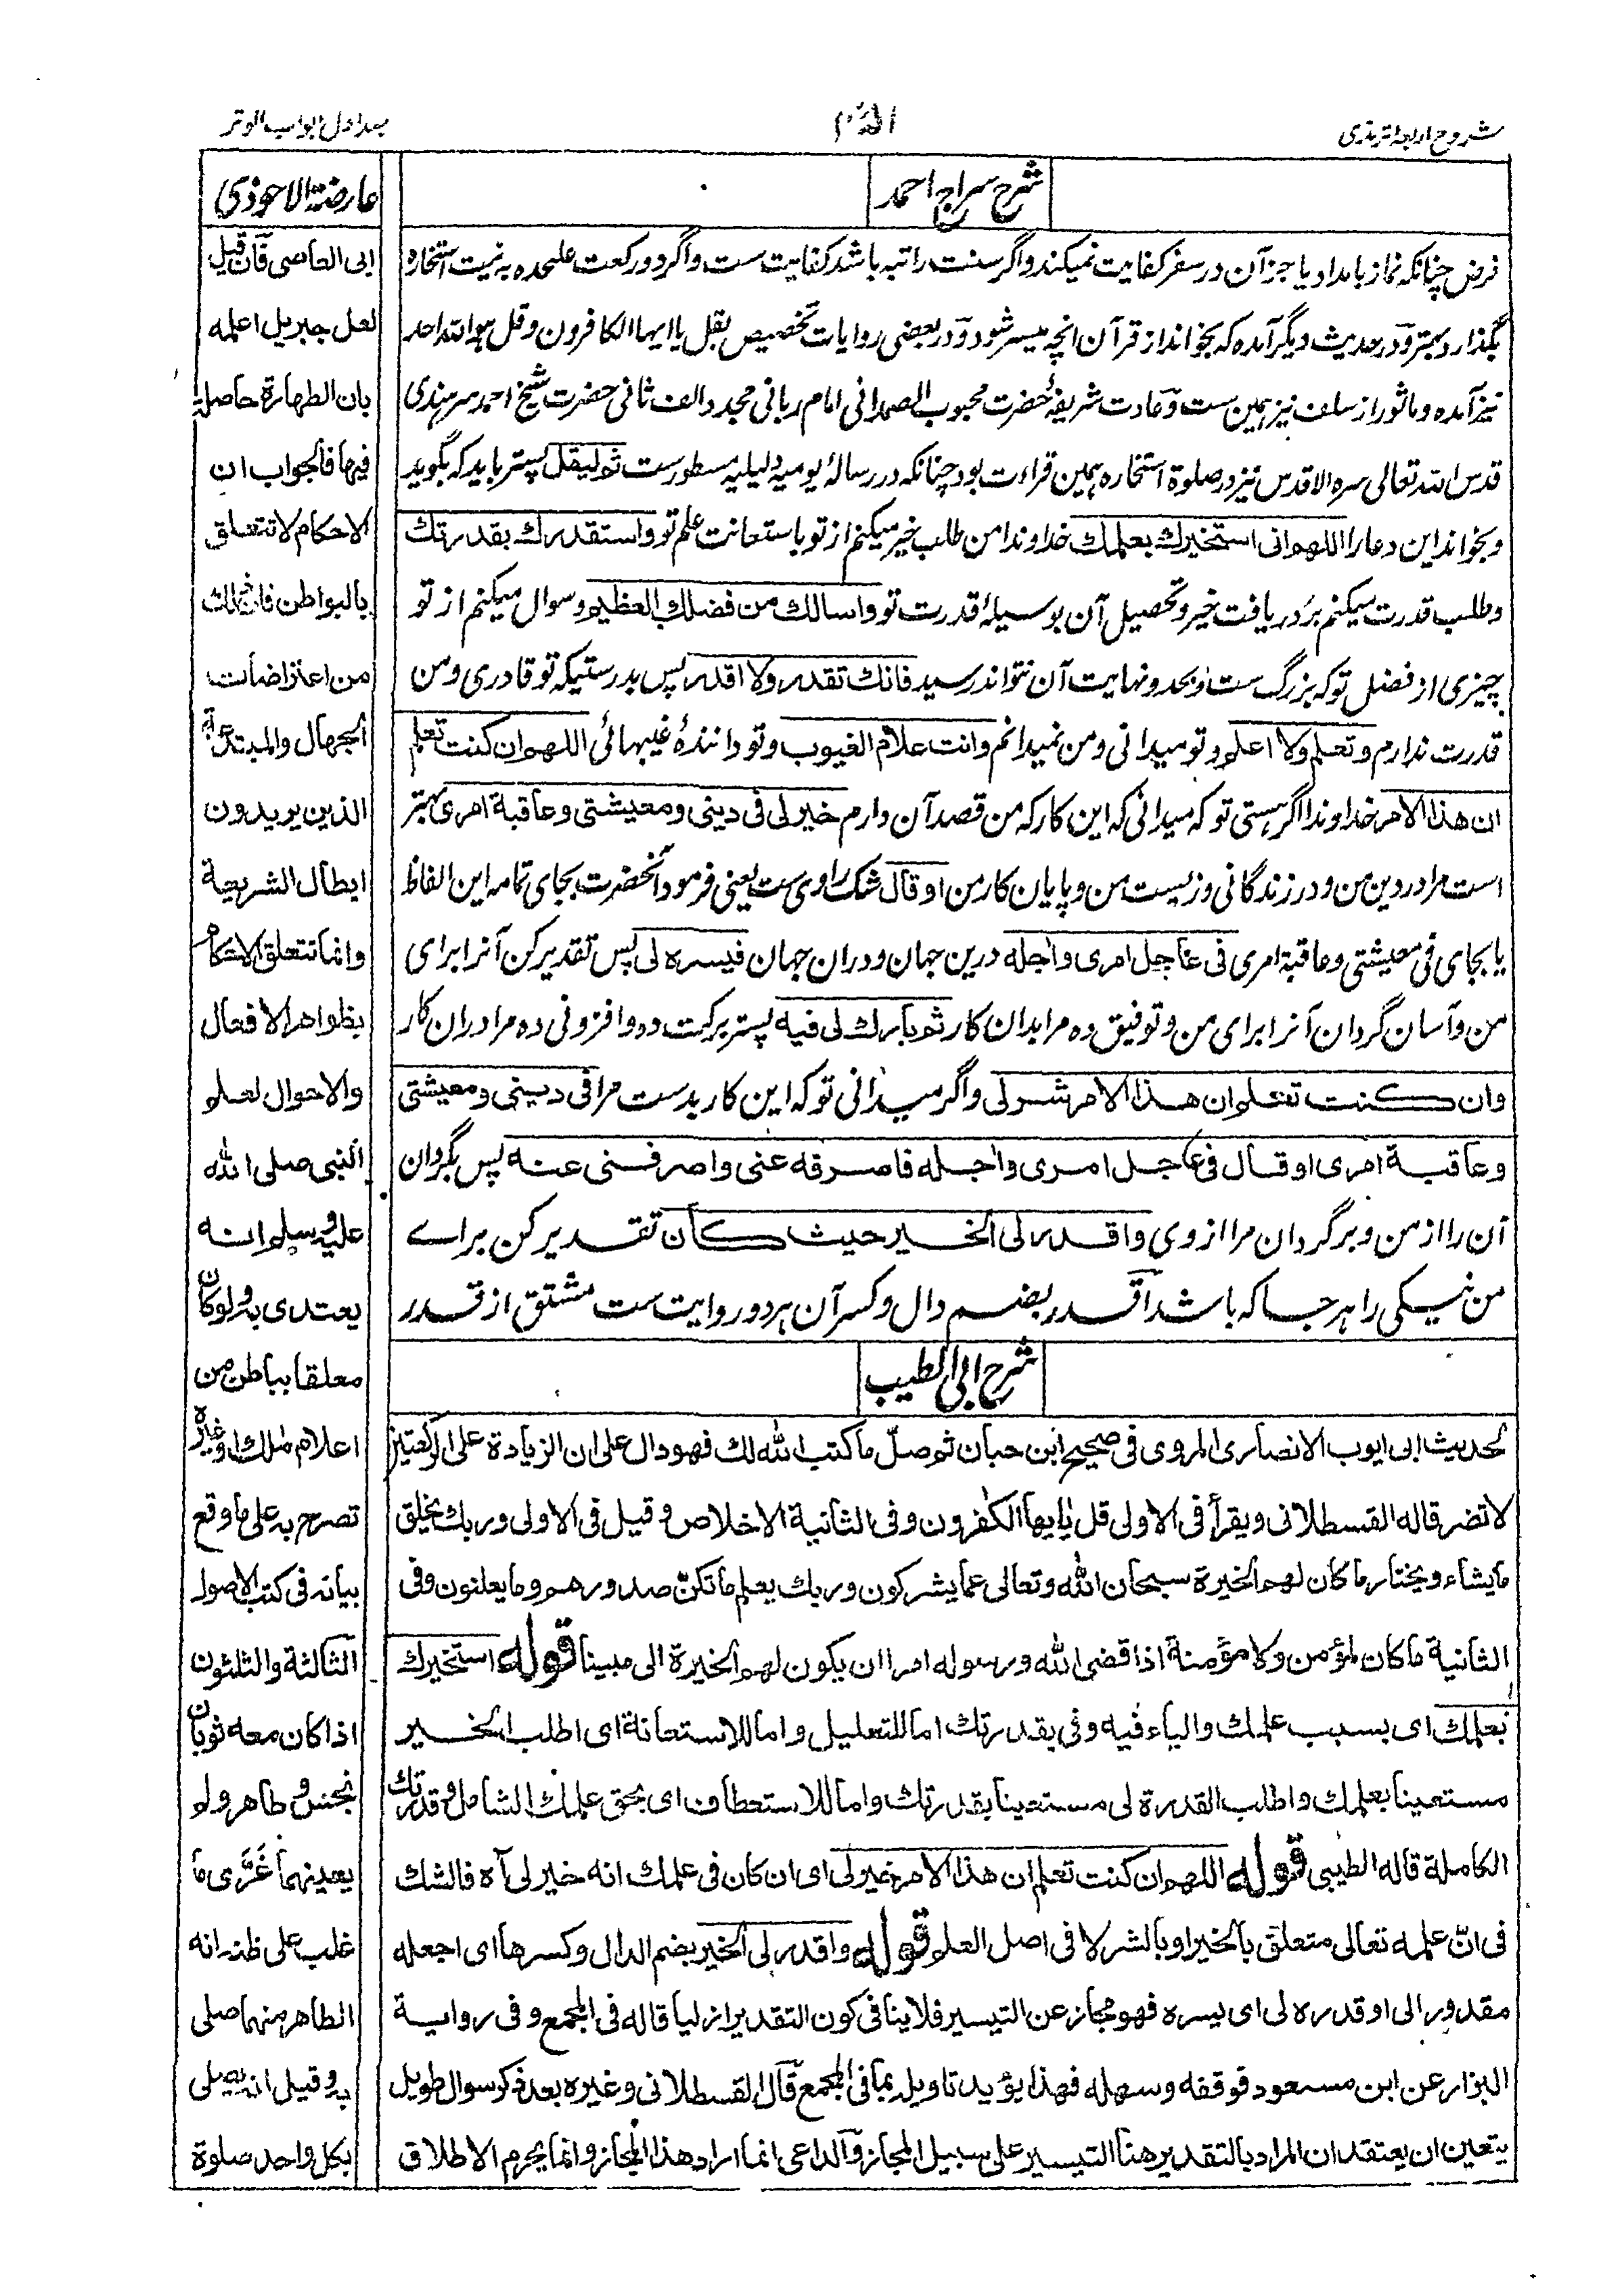 شروح اربعۀ ترمذی
جلد اول ابواب الوتر
شرح سراج احمد
فرض چنانکه نماز بامداد یا جز آن در سفر کفایت نمیکند و اگر سنت راتبه باشد کفایت ست و اگر دو رکعت علیحده به نیت استخاره
بگذارد بهتر و در حدیث دیگر آمده که بخواند از قرآن انچه میسر شود و در بعضی روایات تخصیص بقل یا ایها الکافرون و قل هو الله احد
نیز آمده و ماثور از سلف نیز همین ست و عادت شریفۀ حضرت محبوب الصمدانی امام ربانی مجدد الف ثانی حضرت شیخ احمد سرهندی
قدس الله تعالی سره الاقدس نیز در صلوة استخاره همین قراءت بود چنانکه در رسالۀ یومیه و لیلیه مسطور ست ثم لیقل پستر باید که بگوید
و بخواند این دعا را اللهم انی استخیرك بعلمك خداوندا من طلب خیر میکنم از تو باستعانت علم تو واستقدرك بقدرتك
و طلب قدرت میکنم بر دریافت خیر و تحصیل آن بوسیلۀ قدرت تو واسالك من فضلك العظیم و سوال میکنم از تو
چیزی از فضل تو که بزرگ ست و بحد و نهایت آن نتواند رسید فانك تقدر ولا اقدر پس بدرستیکه تو قادری و من
قدرت ندارم وتعلم ولا اعلم و تو میدانی و من نمیدانم وانت علام الغیوب و تو دانندۀ غیبهائی اللهم ان کنت تعلم
ان هذا الامر خداوندا اگر هستی تو که میدانی که این کار که من قصد آن دارم خیر لی فی دینی ومعیشتی وعاقبة امری بهتر
است مرا در دین من و در زندگانی و زیست من و پایان کار من او قال شك راوی ست یعنی فرمود آنحضرت بجای تمامه این الفاظ
یا بجای فی معیشتی وعاقبة امری فی عاجل امری واجله درین جهان و دران جهان فیسره لی پس تقدیر کن آنرا برای
من و آسان گردان آنرا برای من و توفیق ده مرا بدان کار ثم بارك لی فیه پستر برکت ده و افزونی ده مرا دران کار
وان کنت تعلم ان هذا الامر شر لی و اگر میدانی تو که این کار بدست مرا فی دینی ومعیشتی
وعاقبة امری او قال فی عاجل امری واجله فاصرفه عنی واصرفنی عنه پس بگردان
آن را از من و برگردان مرا از وی واقدر لی الخیر حیث کان تقدیر کن برای
من نیکی را هر جا که باشد اقدر بضم دال و کسر آن هر دو روایت ست مشتق از قدر
شرح ابی الطیب
لحدیث ابی ایوب الانصاری المروی فی صحیح ابن حبان ثم صلّ ما کتب الله لك فهو دال علی ان الزیادة علی الرکعتین
لا تضر قاله القسطلانی ویقرأ فی الاولی قل یایها الکفرون وفی الثانیة الاخلاص وقیل فی الاولی وربك یخلق
ما یشاء ویختار ما کان لهم الخیرة سبحان الله وتعالی عما یشرکون وربك یعلم ما تکنّ صدورهم وما یعلنون وفی
الثانیة ما کان لمؤمن ولا مؤمنة اذا قضی الله ورسوله امرا ان یکون لهم الخیرة الی مبینا قوله استخیرك
بعلمك ای بسبب علمك والباء فیه وفی بقدرتك اما للتعلیل واما للاستعانة ای اطلب الخیر
مستعینا بعلمك واطلب القدرة لی مستعینا بقدرتك واما للاستعطاف ای بحق علمك الشامل وقدرتك
الکاملة قاله الطیبی قوله اللهم ان کنت تعلم ان هذا الامر خیر لی ای ان کان فی علمك انه خیر لی آه فالشك
فی انّ علمه تعالی متعلق بالخیر او بالشر لا فی اصل العلم قوله واقدر لی الخیر بضم الدال وکسرها ای اجعله
مقدورا لی او قدره لی ای یسره فهو مجاز عن التیسیر فلا ینافی کون التقدیر ازلیا قاله فی المجمع وفی روایة
البزار عن ابن مسعود فوفقه وسهله فهذا یؤید تاویله بما فی المجمع قال القسطلانی وغیره بعد ذکر سوال طویل
یتعین ان یعتقد ان المراد بالتقدیر هنا التیسیر علی سبیل المجاز والداعی انما اراد هذا المجاز وانما یحرم الاطلاق
عارضة الاحوذی
ابی العاصی فان قیل
لعل جبریل اعلمه
بان الطهارة حاصلة
فیها فالجواب ان
الاحکام لا تتعلق
بالبواطن فان ذلك
من اعتراضات
الجهال والمبتدعة
الذین یریدون
ابطال الشریعة
وانما تتعلق الاحکام
بظواهر الافعال
والاحوال لعلم
النبی صلی الله
علیه وسلم انه
یعتدی به ولو کان
معلقا بباطن من
اعلام ملك او غیره
تصرح به علی ما وقع
بیانه فی کتب الاصول
الثالثة والثلثون
اذا کان معه ثوبان
نجس وطاهر ولم
یعینهما تحری ما
غلب علی ظنه انه
الطاهر منهما صلی
به وقیل انه یصلی
بکل واحد صلوة